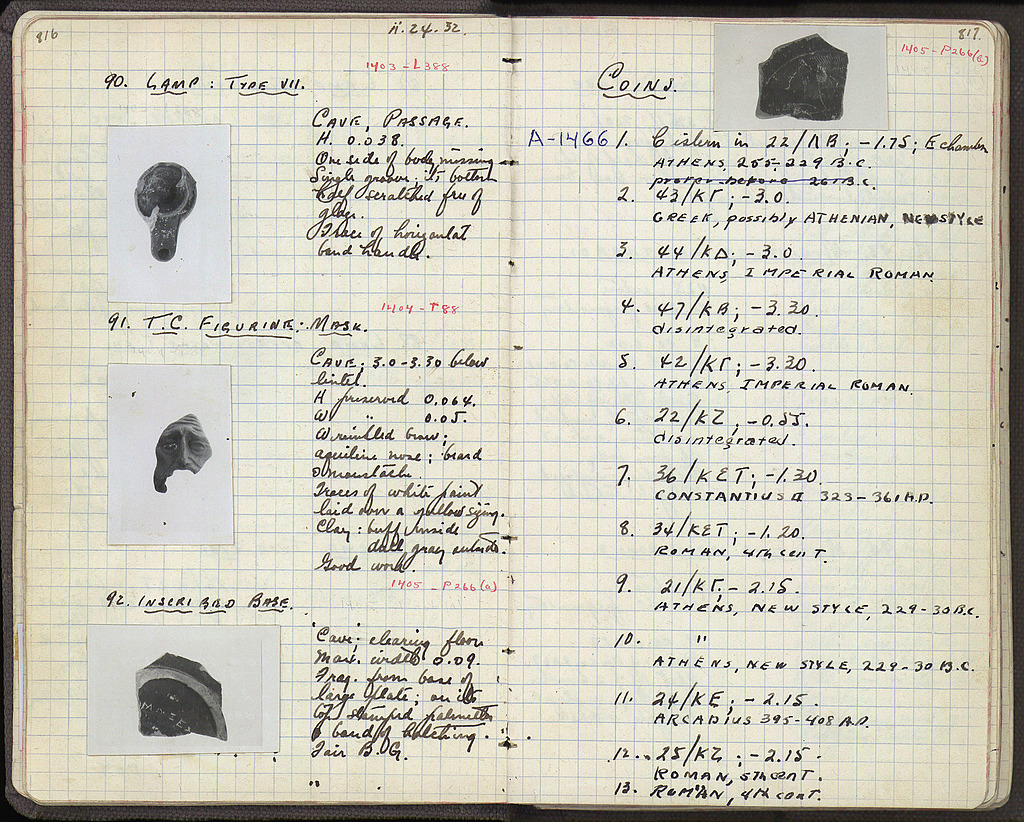 816
II. 24. 32.
1403 - L388
90. LAMP : TYPE VII.
CAVE, PASSAGE.
H. 0.038.
One side of body missing
Single groove; its bottom
half scratched free of
glaze.
Trace of horizontal
band handle.
1404 - T88
91. T.C. FIGURINE: MASK.
CAVE; 3.0-3.30 below
lintel.
H preserved 0.064.
W " 0.05.
Wrinkled brow;
aquiline nose; beard
& moustache.
Traces of white paint
laid over a yellow sizing.
Clay: buff inside
dull gray outside.
Good work.
1405 - P266(a)
92. INSCRIBED BASE.
Cave; clearing floor
Max. width 0.09.
Frag. from base of
large plate; on its
top stamped palmettes
& band of hatching.
Fair B.G.
817.
1405 - P266(a)
COINS.
A-1466 1. Cistern in 22/ΛB; -1.75; E chamber
ATHENS, 255-229 B.C.
proper before 261 B.C.
2. 43/ΚΓ; -3.0.
GREEK, possibly ATHENIAN, NEW STYLE
3. 44/ΚΔ; -3.0.
ATHENS, IMPERIAL ROMAN.
4. 47/KB; -3.30.
disintegrated.
5. 42/ΚΓ; -3.30.
ATHENS, IMPERIAL ROMAN.
6. 22/KZ; -0.55.
disintegrated.
7. 36/ΚΣΤ; -1.30.
CONSTANTIUS II 323-361 A.D.
8. 34/ΚΣΤ; -1.20.
ROMAN, 4th cent.
9. 21/ΚΓ; -2.15.
ATHENS, NEW STYLE, 229-30 B.C.
10. "
ATHENS, NEW STYLE, 229-30 B.C.
11. 24/KE; -2.15.
ARCADIUS 395-408 A.D.
12. 25/KZ; -2.15.
ROMAN, 5th CENT.
13. "
ROMAN, 4th cent.